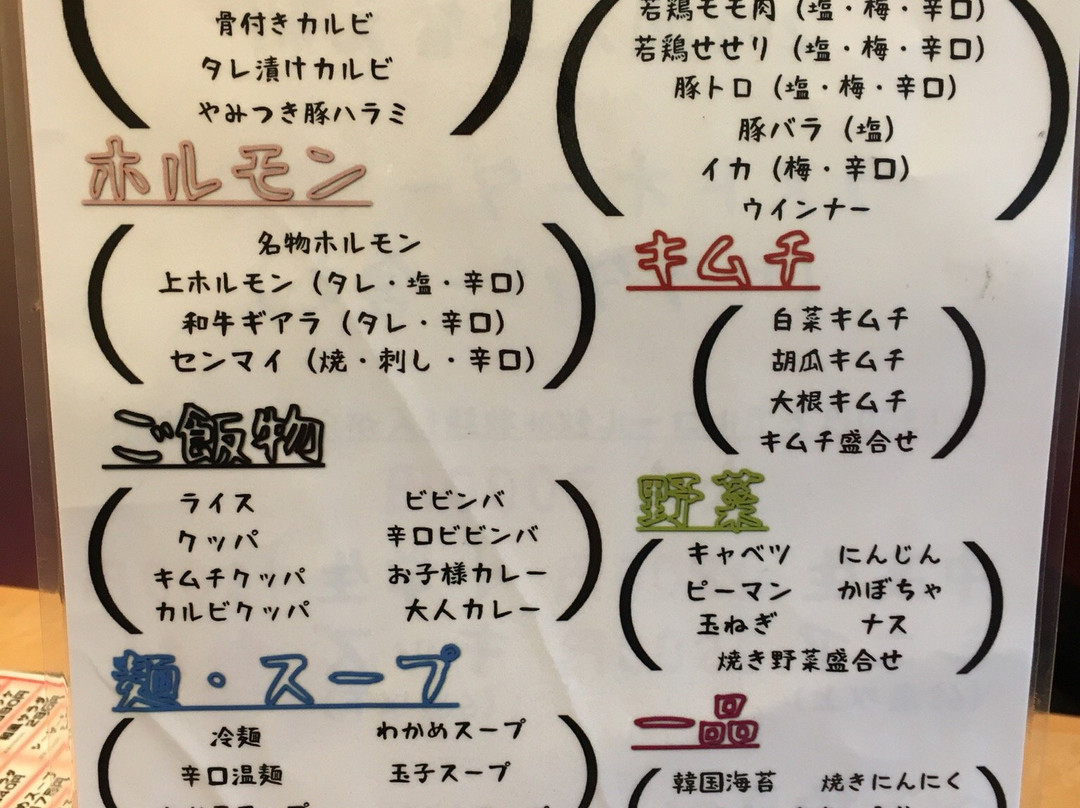 骨付きカルビ
タレ漬けカルビ
やみつき豚ハラミ
ホルモン
名物ホルモン
上ホルモン（タレ・塩・辛口）
和牛ギアラ（タレ・辛口）
センマイ（焼・刺し・辛口）
ご飯物
ライス ビビンバ
クッパ 辛口ビビンバ
キムチクッパ お子様カレー
カルビクッパ 大人カレー
麺・スープ
冷麺 わかめスープ
辛口温麺 玉子スープ
若鶏モモ肉（塩・梅・辛口）
若鶏せせり（塩・梅・辛口）
豚トロ（塩・梅・辛口）
豚バラ（塩）
イカ（梅・辛口）
ウインナー
キムチ
白菜キムチ
胡瓜キムチ
大根キムチ
キムチ盛合せ
野菜
キャベツ にんじん
ピーマン かぼちゃ
玉ねぎ ナス
焼き野菜盛合せ
一品
韓国海苔 焼きにんにく